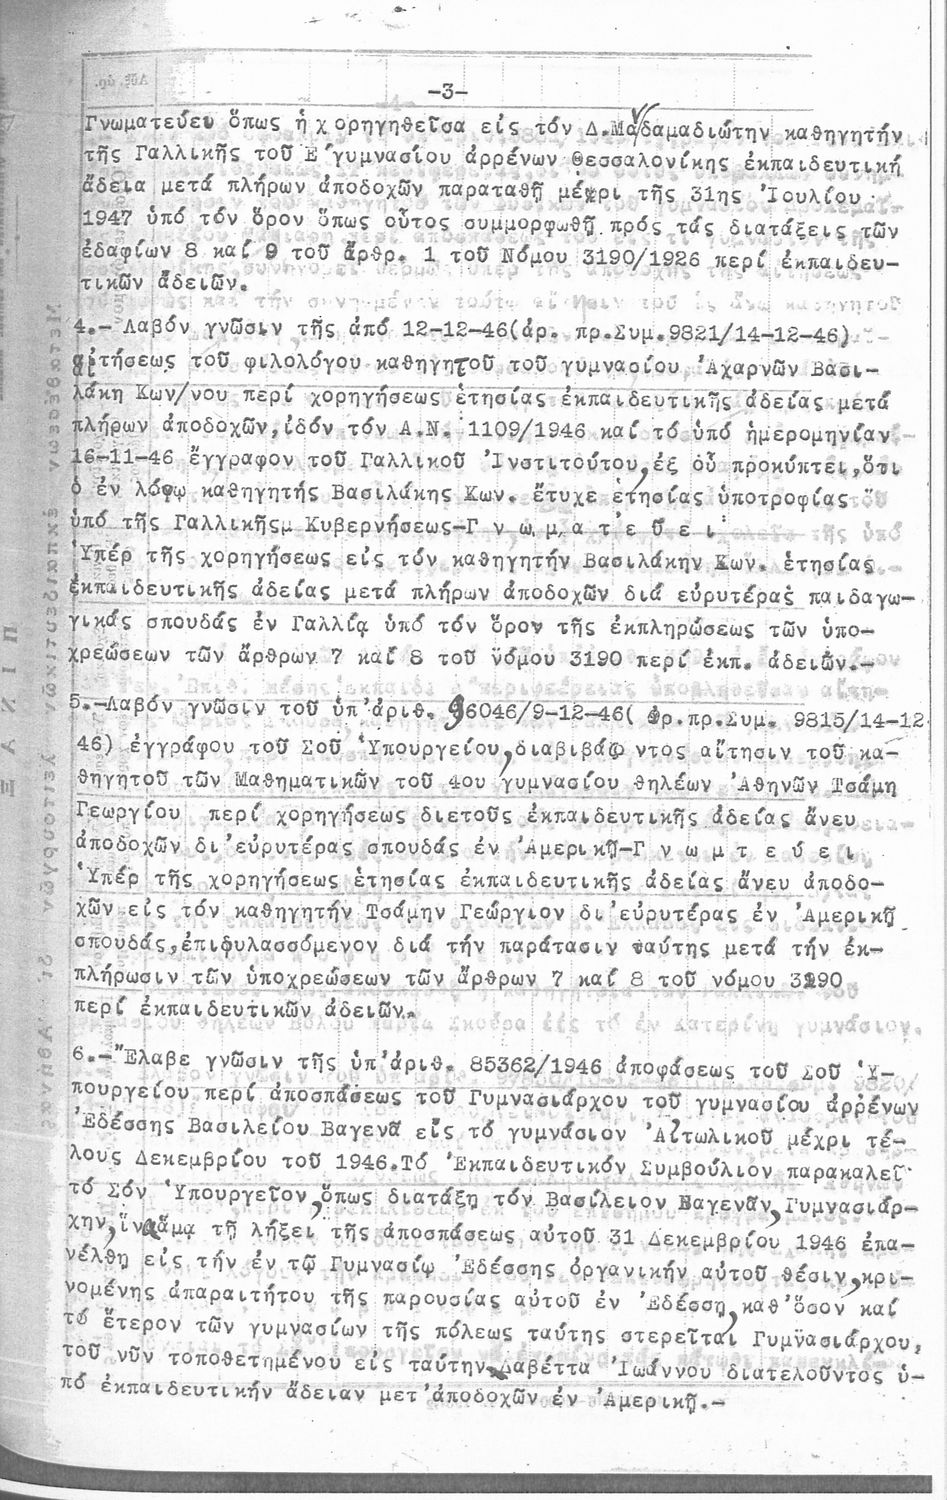 -3-
Γνωματεύει ὅπως ἡ χορηγηθεῖσα εἰς τόν Δ.Μαδαμαδιώτην καθηγητήν
τῆς Γαλλικῆς τοῦ Ε΄γυμνασίου ἀρρένων Θεσσαλονίκης ἐκπαιδευτική
ἄδεια μετά πλήρων ἀποδοχῶν παραταθῇ μέχρι τῆς 31ης Ἰουλίου
1947 ὑπό τόν ὅρον ὅπως οὗτος συμμορφωθῇ πρός τάς διατάξεις τῶν
ἐδαφίων 8 καί 9 τοῦ ἄρθρ. 1 τοῦ Νόμου 3190/1926 περί ἐκπαιδευ-
τικῶν ἀδειῶν.
4.- Λαβόν γνῶσιν τῆς ἀπό 12-12-46(ἀρ. πρ.Συμ.9821/14-12-46)
αἰτήσεως τοῦ φιλολόγου καθηγητοῦ τοῦ γυμνασίου Ἀχαρνῶν Βασι-
λάκη Κων/νου περί χορηγήσεως ἐτησίας ἐκπαιδευτικῆς ἀδείας μετά
πλήρων ἀποδοχῶν,ἰδόν τόν Α.Ν. 1109/1946 καί τό ὑπό ἡμερομηνίαν
16-11-46 ἔγγραφον τοῦ Γαλλικοῦ Ἰνστιτούτου,ἐξ οὗ προκύπτει,ὅτι
ὁ ἐν λόγῳ καθηγητής Βασιλάκης Κων. ἔτυχε ἐτησίας ὑποτροφίας
ὑπό τῆς Γαλλικῆςμ Κυβερνήσεως-Γ ν ω μ α τ ε ύ ε ι
Ὑπέρ τῆς χορηγήσεως εἰς τόν καθηγητήν Βασιλάκην Κων. ἐτησίας
ἐκπαιδευτικῆς ἀδείας μετά πλήρων ἀποδοχῶν διά εὐρυτέρας παιδαγω-
γικάς σπουδάς ἐν Γαλλίᾳ ὑπό τόν ὅρον τῆς ἐκπληρώσεως τῶν ὑπο-
χρεώσεων τῶν ἄρθρων 7 καί 8 τοῦ νόμου 3190 περί ἐκπ. ἀδειῶν.-
5.-Λαβόν γνῶσιν τοῦ ὑπ'ἀριθ. 96046/9-12-46( ἀρ.πρ.Συμ. 9815/14-12
46) ἐγγράφου τοῦ Σοῦ Ὑπουργείου,διαβιβάζοντος αἴτησιν τοῦ κα-
θηγητοῦ τῶν Μαθηματικῶν τοῦ 4ου γυμνασίου θηλέων Ἀθηνῶν Τσάμη
Γεωργίου περί χορηγήσεως διετοῦς ἐκπαιδευτικῆς ἀδείας ἄνευ
ἀποδοχῶν δι'εὐρυτέρας σπουδάς ἐν Ἀμερικῇ-Γ ν ω μ τ ε ύ ε ι
Ὑπέρ τῆς χορηγήσεως ἐτησίας ἐκπαιδευτικῆς ἀδείας ἄνευ ἀποδο-
χῶν εἰς τόν καθηγητήν Τσάμην Γεώργιον δι'εὐρυτέρας ἐν Ἀμερικῇ
σπουδάς,ἐπιφυλασσόμενον διά τήν παράτασιν ταύτης μετά τήν ἐκ-
πλήρωσιν τῶν ὑποχρεώσεων τῶν ἄρθρων 7 καί 8 τοῦ νόμου 3190
περί ἐκπαιδευτικῶν ἀδειῶν.
6.-Ἔλαβε γνῶσιν τῆς ὑπ'ἀριθ. 85362/1946 ἀποφάσεως τοῦ Σοῦ Ὑ-
πουργείου περί ἀποσπάσεως τοῦ Γυμνασιάρχου τοῦ γυμνασίου ἀρρένων
Ἐδέσσης Βασιλείου Βαγενᾶ εἰς τό γυμνάσιον Αἰτωλικοῦ μέχρι τέ-
λους Δεκεμβρίου τοῦ 1946.Τό Ἐκπαιδευτικόν Συμβούλιον παρακαλεῖ
τό Σόν Ὑπουργεῖον,ὅπως διατάξῃ τόν Βασίλειον Βαγενᾶν,Γυμνασιάρ-
χην,ἵνα ἅμα τῇ λήξει τῆς ἀποσπάσεως αὐτοῦ 31 Δεκεμβρίου 1946 ἐπα-
νέλθῃ εἰς τήν ἐν τῷ Γυμνασίῳ Ἐδέσσης ὀργανικήν αὐτοῦ θέσιν,κρι-
νομένης ἀπαραιτήτου τῆς παρουσίας αὐτοῦ ἐν Ἐδέσσῃ,καθ'ὅσον καί
τό ἕτερον τῶν γυμνασίων τῆς πόλεως ταύτης στερεῖται Γυμνασιάρχου,
τοῦ νῦν τοποθετημένου εἰς ταύτην Δαβέττα Ἰωάννου διατελοῦντος ὑ-
πό ἐκπαιδευτικήν ἄδειαν μετ'ἀποδοχῶν ἐν Ἀμερικῇ.-